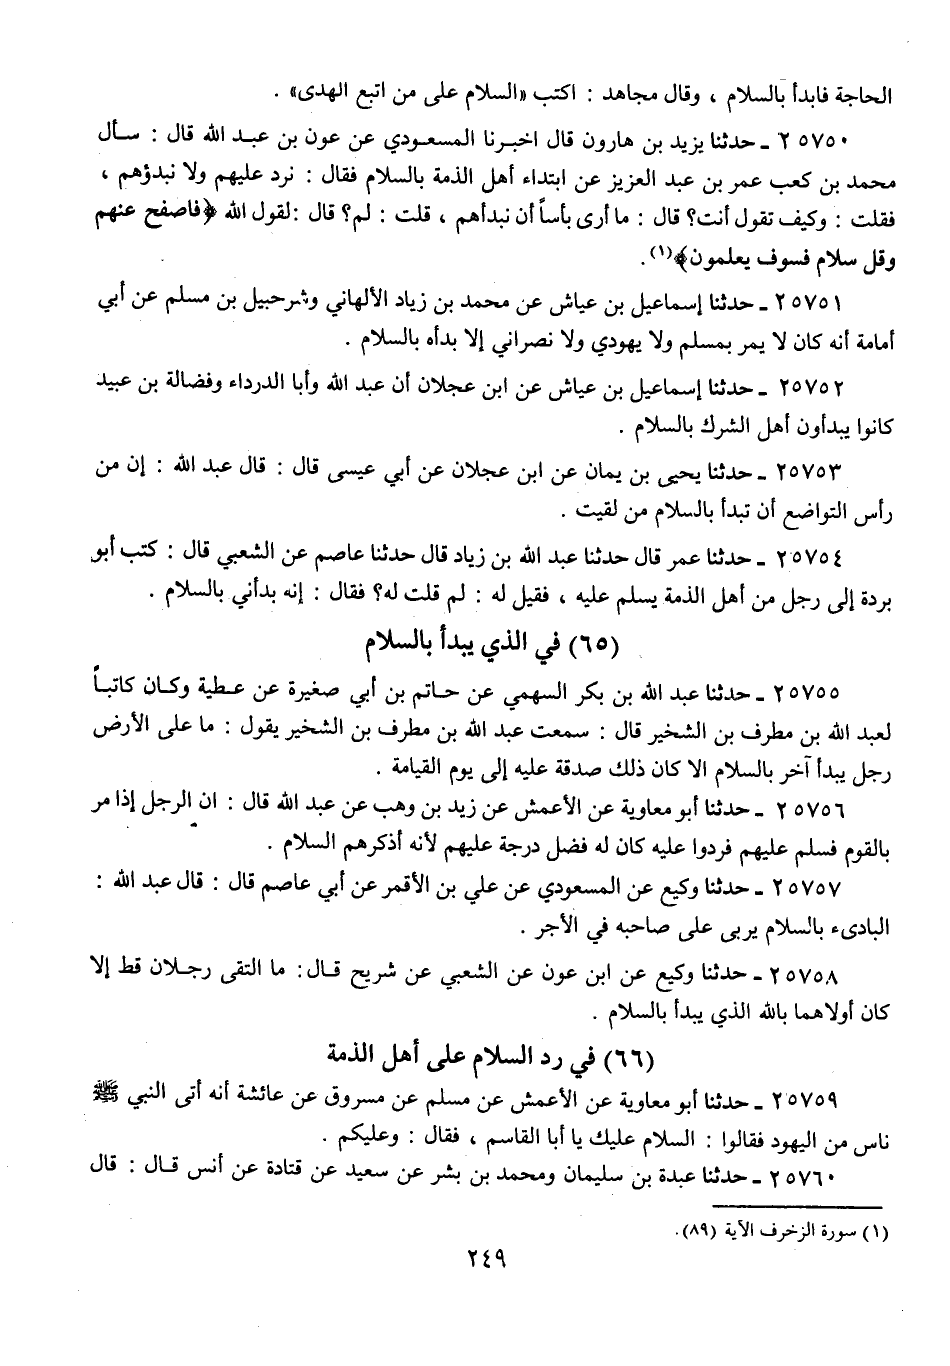 الحاجة فابدأ بالسلام ، وقال مجاهد : اكتب «السلام على من اتبع الهدى» .
٢٥٧٥٠ ـ حدثنا يزيد بن هارون قال اخبرنا المسعودي عن عون بن عبد الله قال : سأل
محمد بن كعب عمر بن عبد العزيز عن ابتداء أهل الذمة بالسلام فقال : نرد عليهم ولا نبدؤهم ،
فقلت : وكيف تقول أنت؟ قال : ما أرى بأساً أن نبدأهم ، قلت : لم؟ قال :لقول الله ﴿فاصفح عنهم
وقل سلام فسوف يعلمون﴾(١).
٢٥٧٥١ ـ حدثنا إسماعيل بن عياش عن محمد بن زياد الألهاني وشرحبيل بن مسلم عن أبي
أمامة أنه كان لا يمر بمسلم ولا يهودي ولا نصراني إلا بدأه بالسلام .
٢٥٧٥٢ ـ حدثنا إسماعيل بن عياش عن ابن عجلان أن عبد الله وأبا الدرداء وفضالة بن عبيد
كانوا يبدأون أهل الشرك بالسلام .
٢٥٧٥٣ ـ حدثنا يحيى بن يمان عن ابن عجلان عن أبي عيسى قال : قال عبد الله : إن من
رأس التواضع أن تبدأ بالسلام من لقيت .
٢٥٧٥٤ ـ حدثنا عمر قال حدثنا عبد الله بن زياد قال حدثنا عاصم عن الشعبي قال : كتب أبو
بردة إلى رجل من أهل الذمة يسلم عليه ، فقيل له : لم قلت له؟ فقال : إنه بدأني بالسلام .
(٦٥) في الذي يبدأ بالسلام
٢٥٧٥٥ ـ حدثنا عبد الله بن بكر السهمي عن حاتم بن أبي صغيرة عن عطية وكان كاتباً
لعبد الله بن مطرف بن الشخير قال : سمعت عبد الله بن مطرف بن الشخير يقول : ما على الأرض
رجل يبدأ آخر بالسلام الا كان ذلك صدقة عليه إلى يوم القيامة .
٢٥٧٥٦ ـ حدثنا أبو معاوية عن الأعمش عن زيد بن وهب عن عبد الله قال : ان الرجل إذا مر
بالقوم فسلم عليهم فردوا عليه كان له فضل درجة عليهم لأنه أذكرهم السلام .
٢٥٧٥٧ ـ حدثنا وكيع عن المسعودي عن علي بن الأقمر عن أبي عاصم قال : قال عبد الله :
البادىء بالسلام يربى على صاحبه في الأجر .
٢٥٧٥٨ ـ حدثنا وكيع عن ابن عون عن الشعبي عن شريح قال: ما التقى رجلان قط إلا
كان أولاهما بالله الذي يبدأ بالسلام .
(٦٦) في رد السلام على أهل الذمة
٢٥٧٥٩ ـ حدثنا أبو معاوية عن الأعمش عن مسلم عن مسروق عن عائشة أنه أتى النبي ﷺ
ناس من اليهود فقالوا : السلام عليك يا أبا القاسم ، فقال : وعليكم .
٢٥٧٦٠ ـ حدثنا عبدة بن سليمان ومحمد بن بشر عن سعيد عن قتادة عن أنس قال : قال
(١) سورة الزخرف الآية (٨٩).
٢٤٩